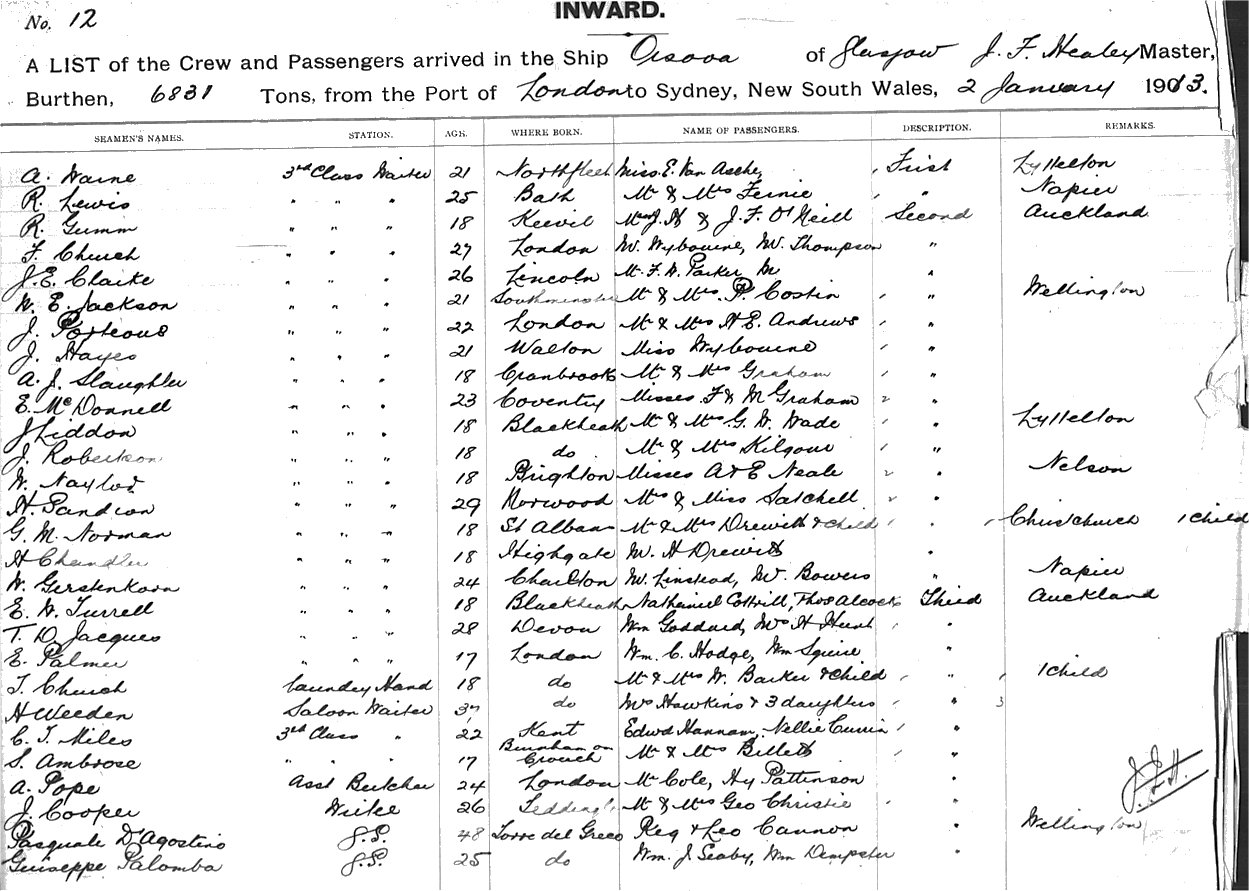 No. 12
INWARD.
A LIST of the Crew and Passengers arrived in the Ship Orsova of Glasgow J. F. Healey Master,
Burthen, 6831 Tons, from the Port of London to Sydney, New South Wales, 2 January 1913.
SEAMEN'S NAMES. STATION. AGE. WHERE BORN. NAME OF PASSENGERS. DESCRIPTION. REMARKS.
A. Warne 3rd Class Waiter 21 Northfleet Miss E. Van Asche, First Lyttelton
R. Lewis " " " 25 Bath Mr & Mrs Fernie " Napier
R. Gumm " " " 18 Keevil J. F. O'Neill Second Auckland
F. Church " " " 27 London Mr. Wybourne, Mr. Thompson "
J. E. Clarke " " " 26 Lincoln Mr. F. W. Parker, M "
W. E. Jackson " " " 21 Southminster Mr & Mrs P. Costin " Wellington
J. Porteous " " " 22 London Mr & Mrs H E. Andrews "
J. Hayes " " " 21 Walton Miss Wybourne "
A. J. Slaughter " " " 18 Cranbrook Mr & Mrs Graham "
E. McDonnell " " " 23 Coventry Misses F & M Graham 2 "
J Liddon " " " 18 Blackheath Mr & Mrs G. W. Wade " Lyttelton
J. Robertson " " " 18 do Mr & Mrs Kilgour "
W. Naylor " " " 18 Brighton Misses A & E Neale 2 " Nelson
H. Pandion " " " 29 Norwood Mrs & Miss Satchell 2 "
G. M. Norman " " " 18 St Albans Mr & Mrs Drewitt & child " Christchurch 1 child
H Chandler " " " 18 Highgate Mr. H Drewitt "
W. Gerstenkorn " " " 24 Charlton Mr. Linstead, Mr. Bowers " Napier
E. W. Turrell " " " 18 Blackheath Nathaniel Cottrill, Thos Alcock Third Auckland
T. D. Jacques " " " 28 Devon Wm Goddard, Mrs H Hunt "
E. Palmer " " " 17 London Wm. C. Hodge, Wm Squire "
T. Church Laundry Hand 18 do Mr & Mrs W. Barker & child " 1 child
H Weeden Saloon Waiter 37 do Mrs Hawkins & 3 daughters " 3
C. T. Miles 3rd Class " 22 Kent Edwd Hannam, Nellie Currin "
S. Ambrose " " " 17 Burnham on Crouch Mr & Mrs Billett "
A. Pope Asst Butcher 24 London Mr Cole, Hy Pattinson "
J. Cooper 26 Mr & Mrs Geo Christie " J.F.H.
Pasquale D'Agostino 48 Torre del Greco Reg & Leo Cannon " Wellington
Guiseppe Palomba 25 do Wm. J. Seaby, Wm Dempster "